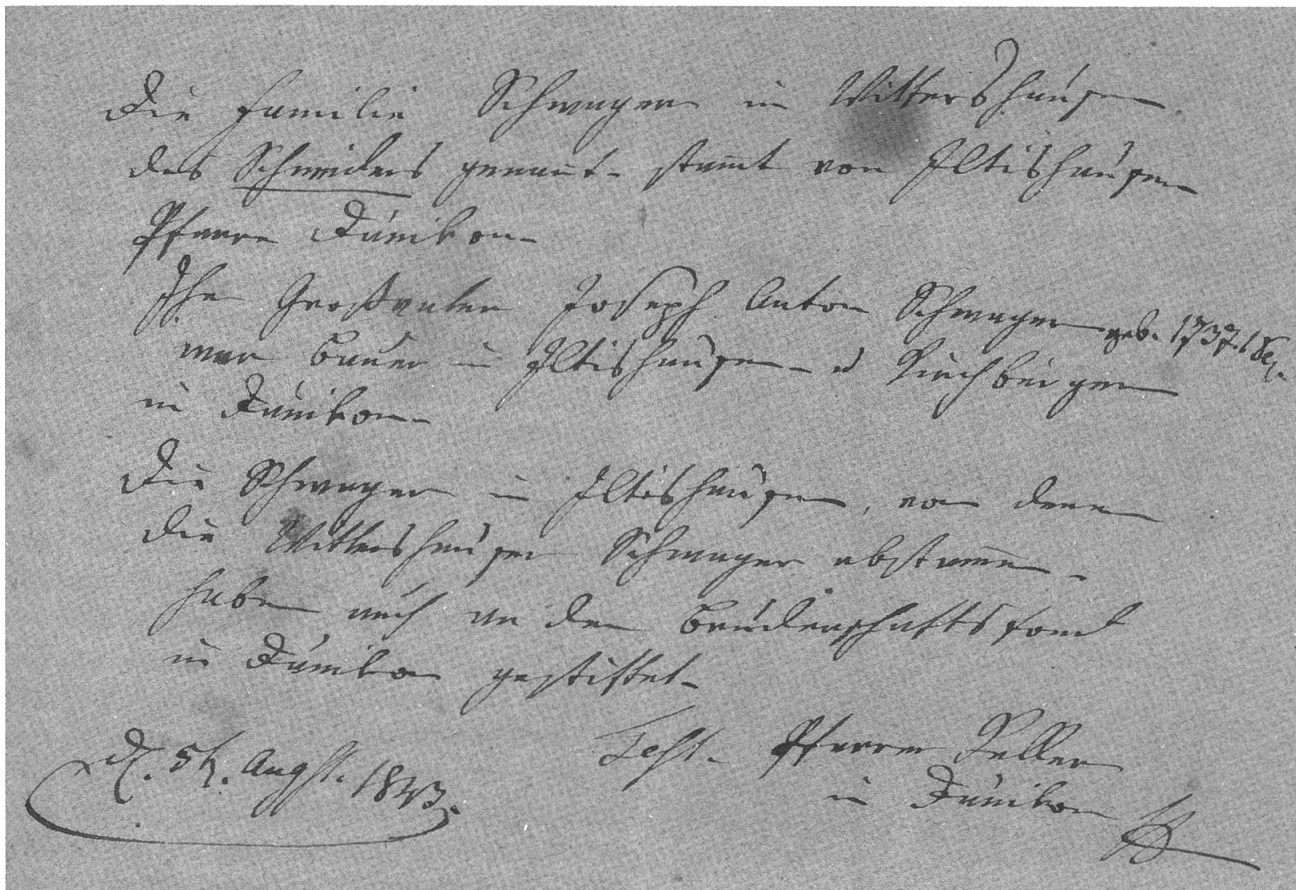 Die Familie Schwager in Wittershausen
des Schneiders genannt- stammt von Iltishausen
Pfarre Dänikon-
Ihr Großvater Joseph Anton Schwager geb. 1737.
war Bauer in Iltishausen- u Kirchbürger
in Dänikon-
Die Schwager in Iltishausen, von denen
die Wittershauser Schwager abstammen-
haben auch an den Bruderschaftsfond
in Dänikon gestiftet-
Test. Pfarrer Keller
in Dänikon
d. 5t. Augst. 1843.